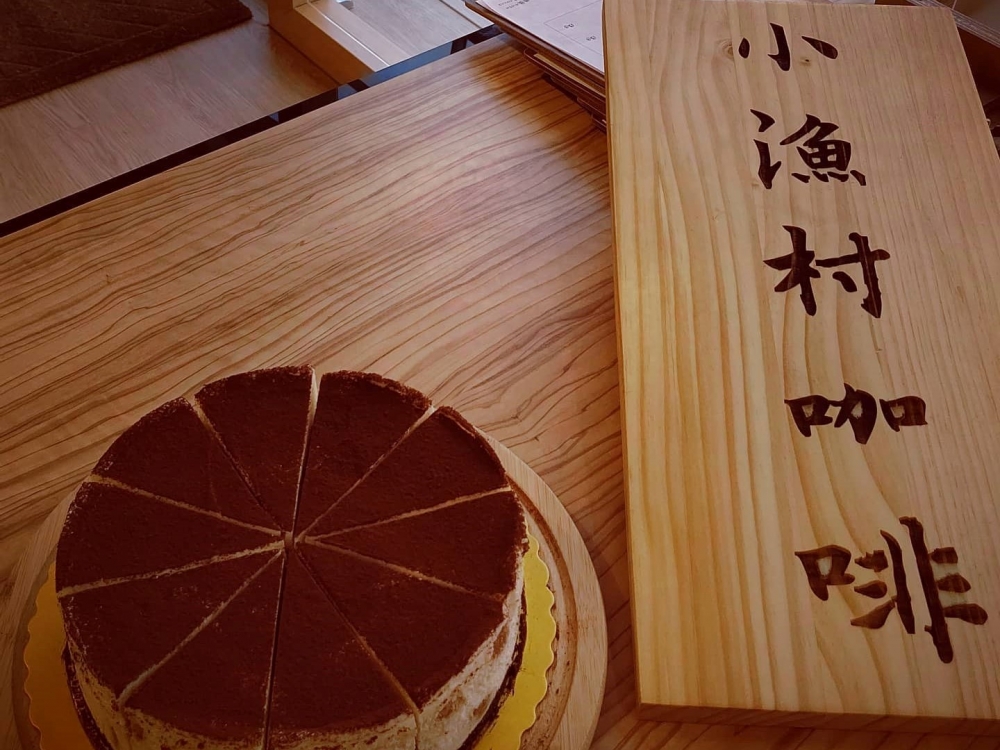 小漁村咖啡